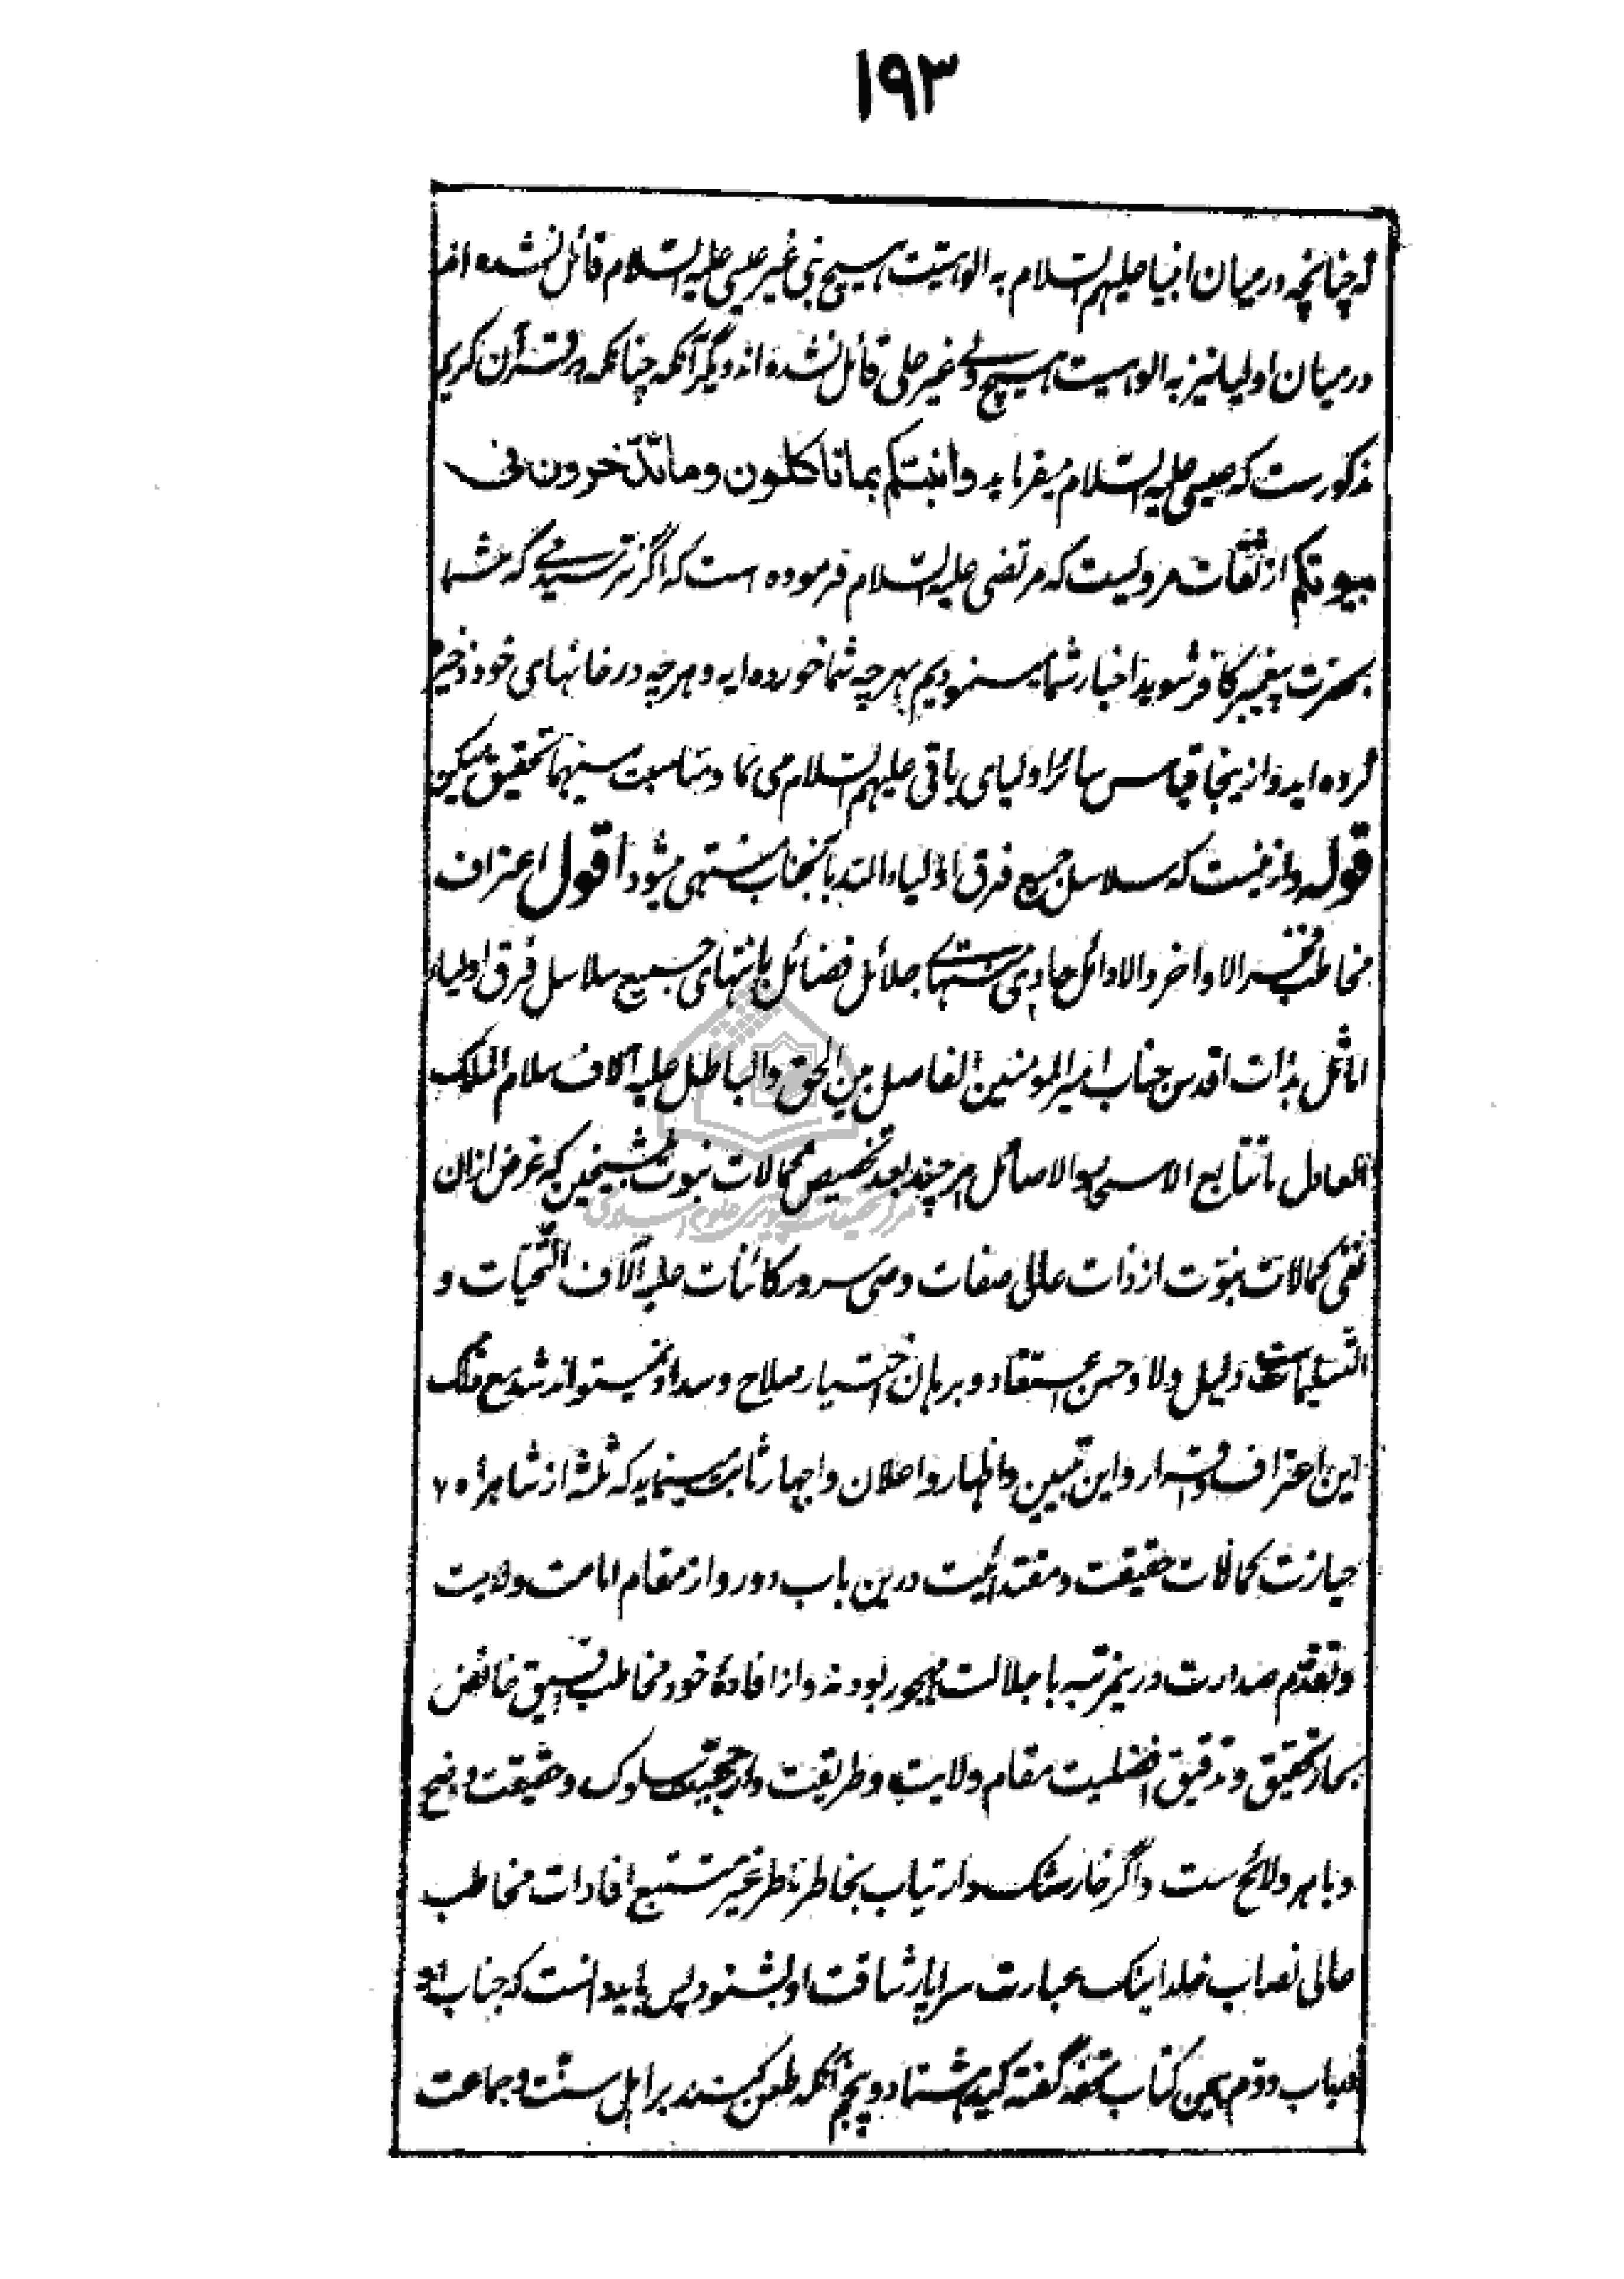 ۱۹۳
که چنانچه در میان انبیا علیهم السلام به الوهیت هیچ نبی غیر عیسی علیه السلام قائل نشده اند
در میان اولیا نیز به الوهیت هیچ ولی غیر علی قائل نشده اند و دیگر آنکه چنانکه در قرآن کریم
مذکورست که عیسی علیه السلام میفرماید وانبئکم بما تاکلون وما تدّخرون فی
بیوتکم از ثقات مرویست که مرتضی علیه السلام فرموده است که اگر نترسیدمی که شما
بحضرت پیغمبر کافر شوید اخبار شما مینمودیم بهر چه شما خورده اید و هر چه در خانهای خود ذخیره
کرده اید و ازینجا قیاس سائر اولیای باقی علیهم السلام می نما و مناسبت بینهما تحقیق میکن
قوله و ازینست که سلاسل جمیع فرق اولیاء الله بآنجناب منتهی میشود اقول اعتراف
مخاطب فخر الاواخر والاوائل حاوی منتهای جلائل فضائل بانتهای جمیع سلاسل فرق اولیاء
اماثل بذات اقدس جناب امیر المومنین الفاصل بین الحق والباطل علیه آلاف سلام الملک
العادل ما تتابع الاسحار والاصائل هر چند بعد تخصیص کمالات نبوت بشیخین که غرض ازان
نفی کمالات نبوّت از ذات عالی صفات وصی سرور کائنات علیه آلاف التحیّات و
التسلیمات ست دلیل ولا و حسن اعتقاد و برهان اختیار صلاح و سداد نمیتواند شد مع ذلک
این اعتراف و اقرار و این تبیین و اظهار و اعلان و اجهار ثابت مینماید که ثلثه از شاهراه
حیازت کمالات حقیقت و مقتدائیت درین باب دور و از مقام امامت ولایت
و تقدّم صدارت درینمرتبه با جلالت مهجور بودند و از افادهٔ خود مخاطب خائض
بحار تحقیق و تدقیق افضلیت مقام ولایت و طریقت و ارجحیت سلوک و حقیقت واضح
و باهر و لائح ست و اگر خار شک و ارتیاب بخاطر ناظر غیر متتبع افادات مخاطب
عالی نصاب خلد اینک عبارت سراپا رشاقت او بشنود پس باید دانست که جناب او
در باب دوم همین کتاب تحفه گفته کید هشتاد و پنجم آنکه طعن کنند بر اهل سنّت و جماعت